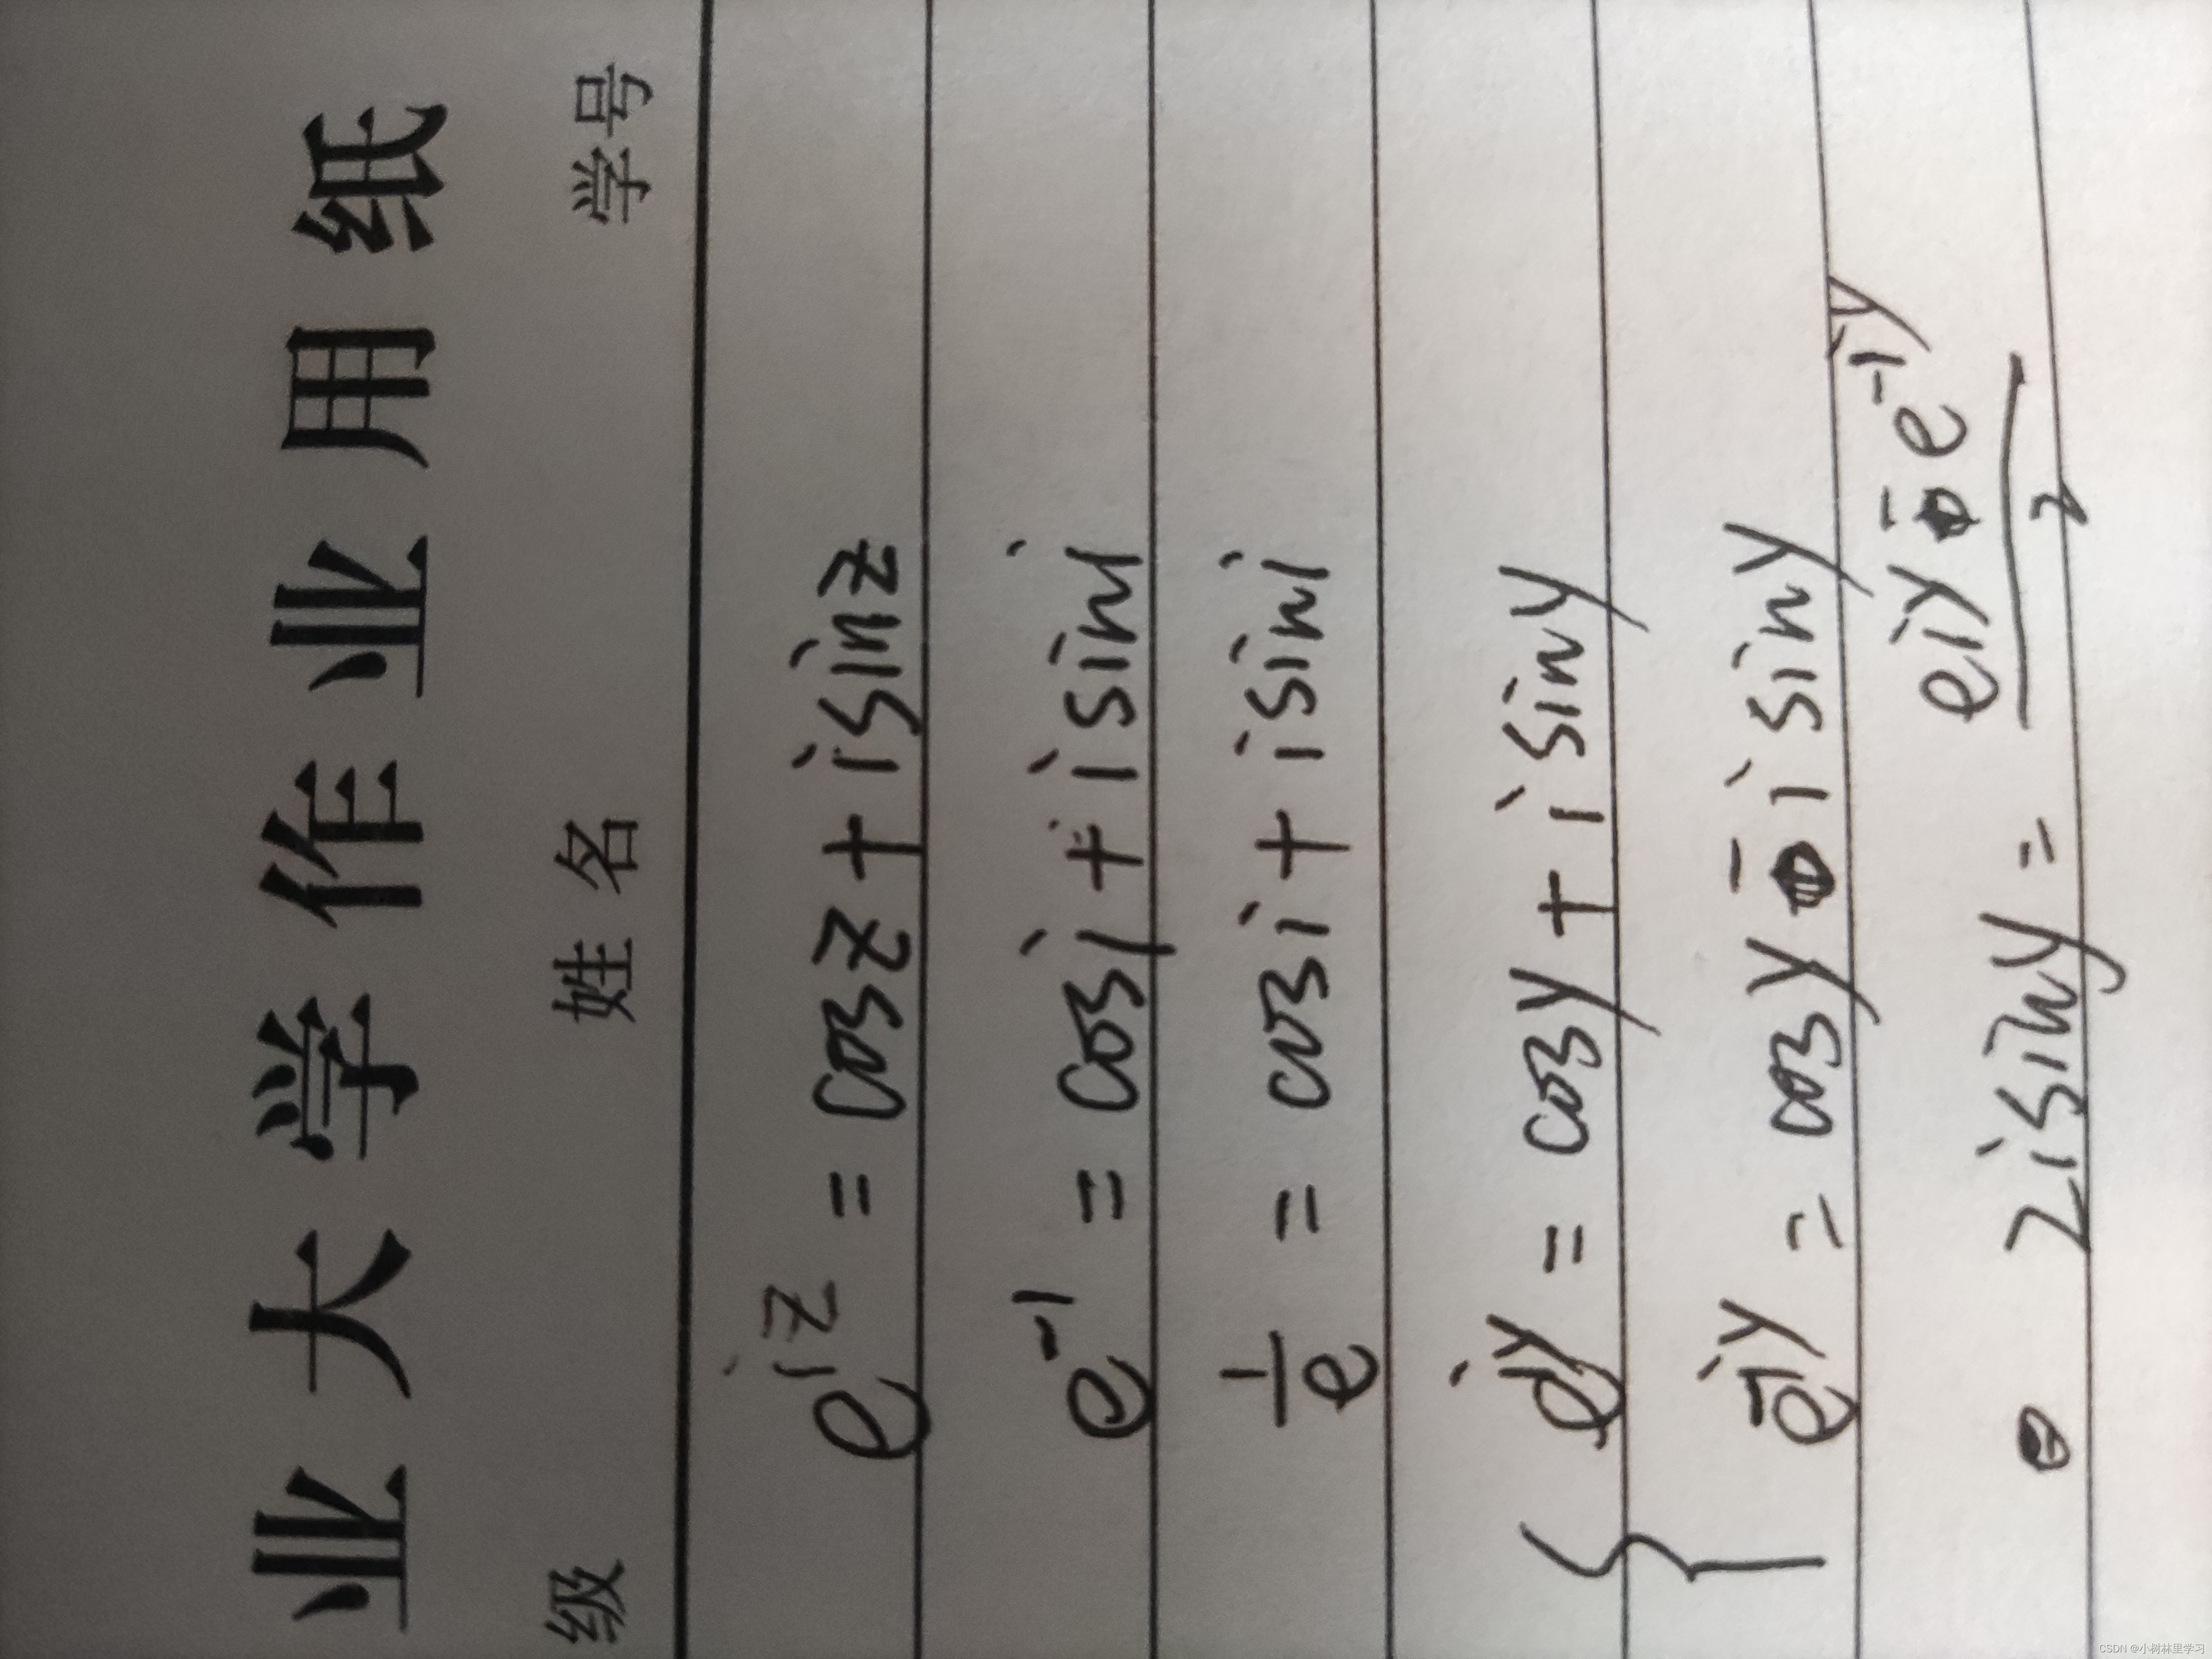 业大学作业用纸
级 姓名 学号
e^{iz} = cosz + isinz
e^{-1} = cosi + isini
\frac{1}{e} = cosi + isini
{ e^{iy} = cosy + isiny
e^{-iy} = cosy - isiny
2isiny = \frac{e^{iy} - e^{-iy}}{2}
CSDN @小树林里学习